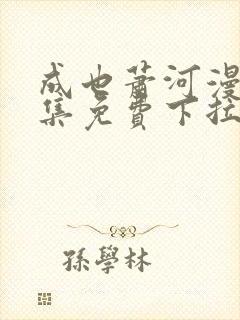 成也萧河漫
集免費下拉
孫學林